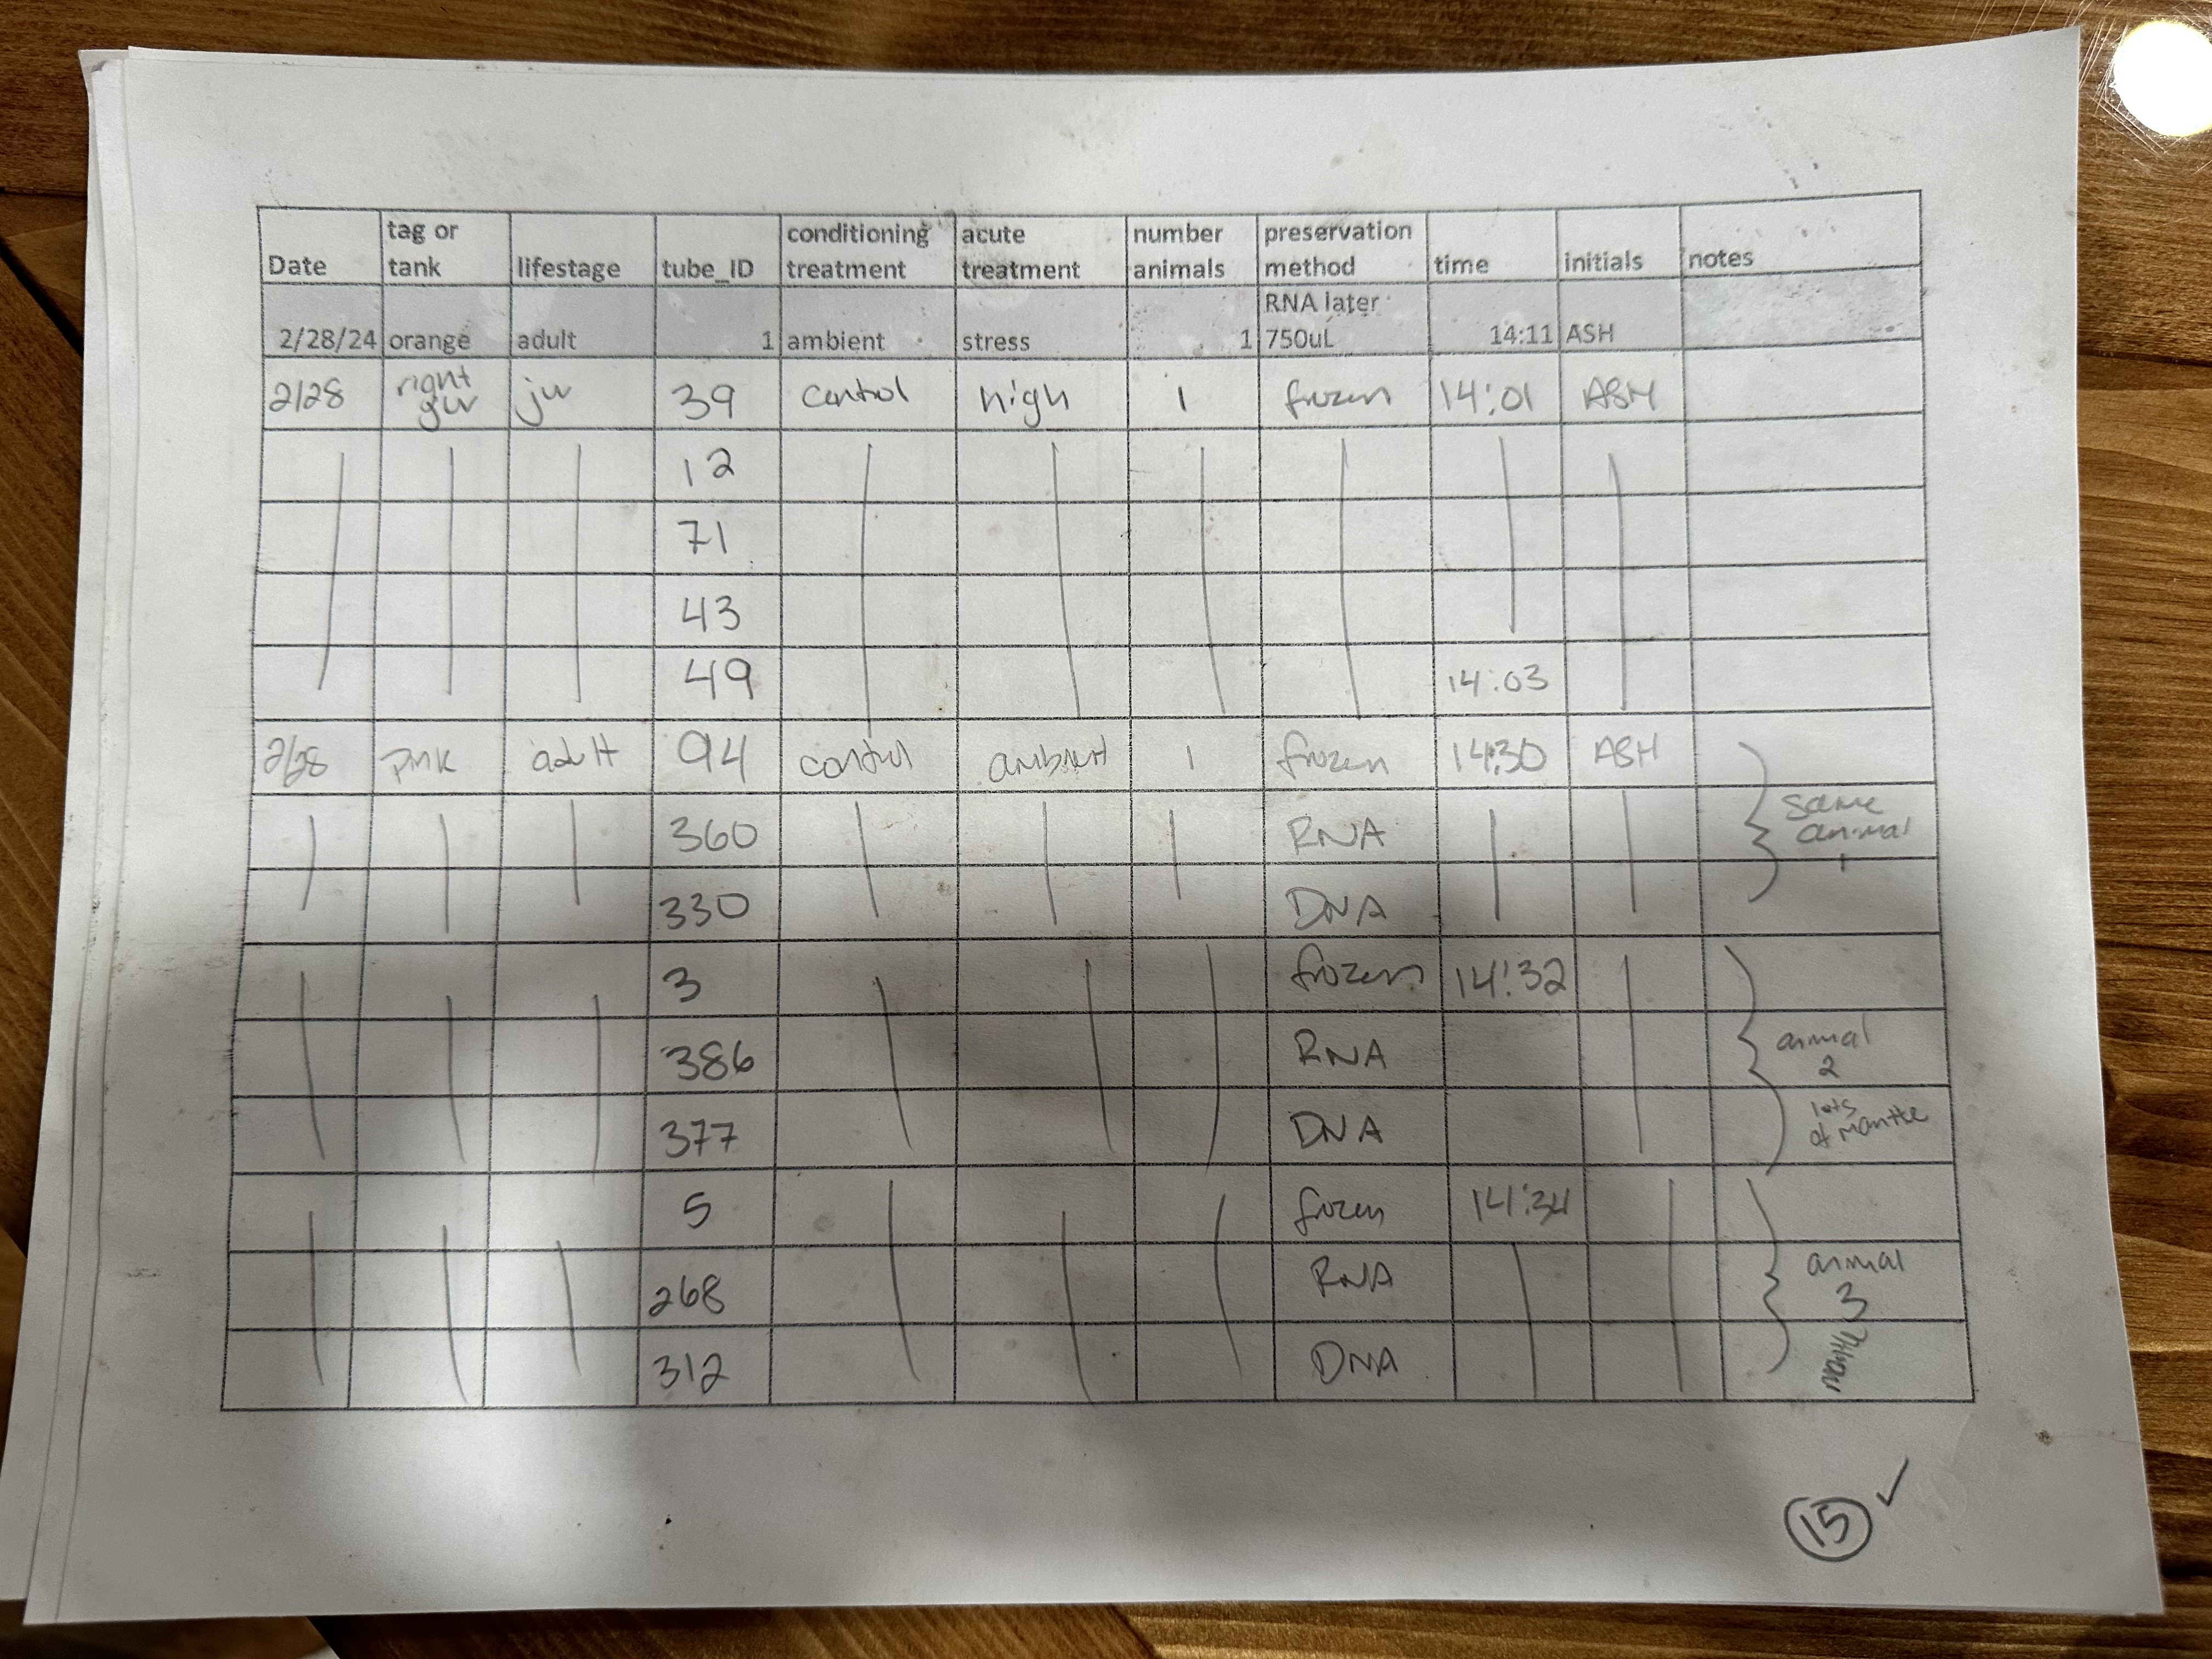 Date tag or tank lifestage tube_ID conditioning treatment acute treatment number animals preservation method time initials notes
2/28/24 orange adult 1 ambient stress 1 RNA later 750uL 14:11 ASH
2/28 right juv juv 39 control high 1 frozen 14:01 ASH
12
71
43
49 14:03
2/28 pink adult 94 control ambient 1 frozen 14:30 ASH
360 RNA same animal
330 DNA
3 frozen 14:32
386 RNA animal 2
377 DNA lots of mantle
5 frozen 14:34
268 RNA animal 3
312 DNA
15 ✓